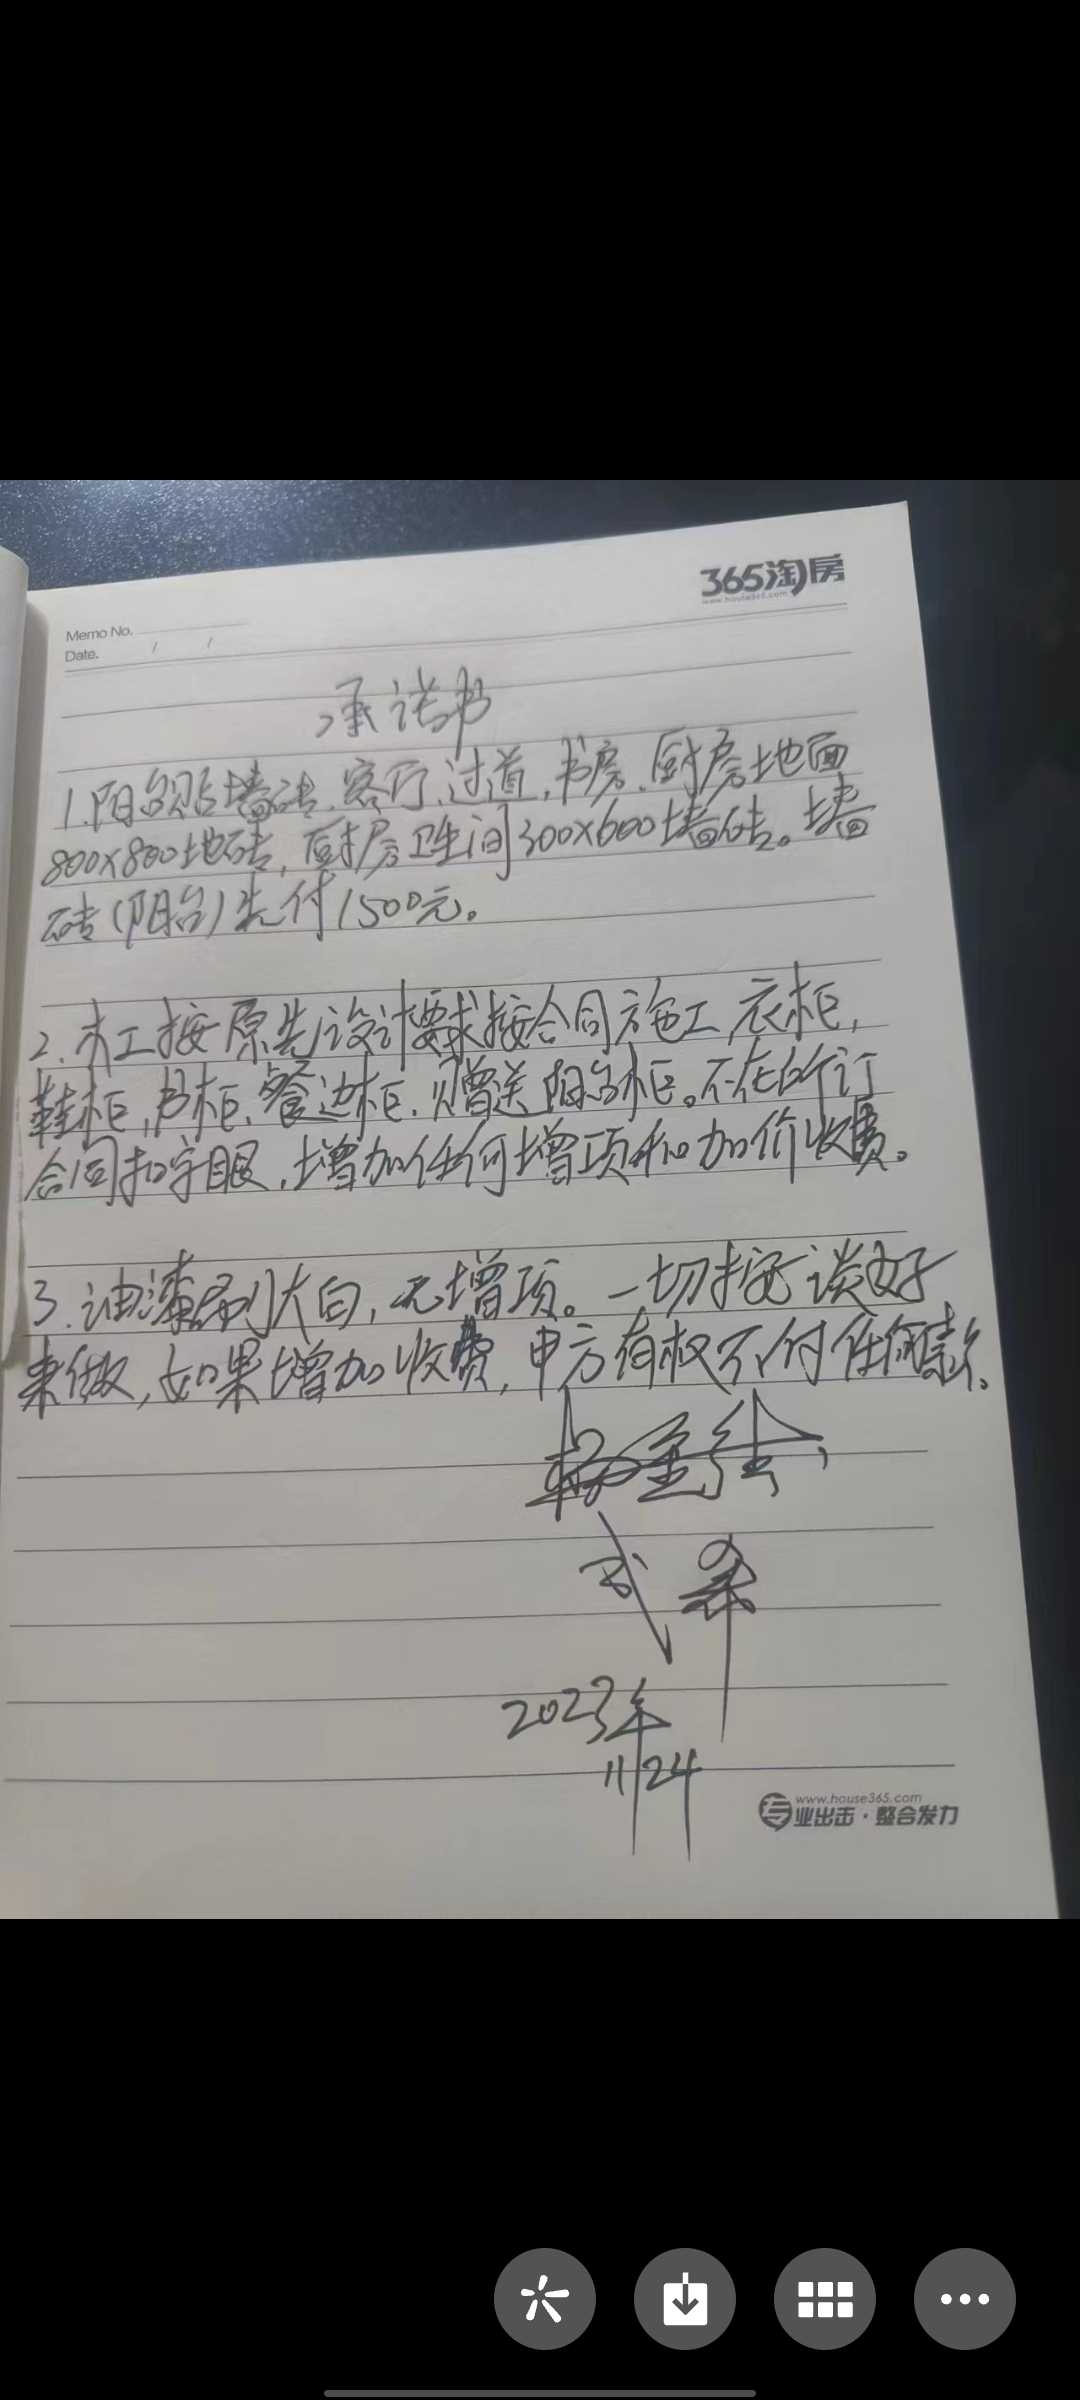 365淘房
www.house365.com
Memo No.
Date. / /
承诺书
1.阳台贴墙砖.客厅、过道,书房.厨房地面
800x800地砖,厨房卫生间300x600墙砖。墙
砖(阳台)先付1500元。
2.木工按原先设计要求按合同施工,衣柜,
鞋柜,书柜.餐边柜.赠送阳台柜。不在的订
合同扣字眼,增加任何增项和加价收费。
3.油漆刷大白,无增项。一切按谈好
来做,如果增加收费,甲方有权不付任何款。
2023年
11/24
www.house365.com
专业出击·整合发力